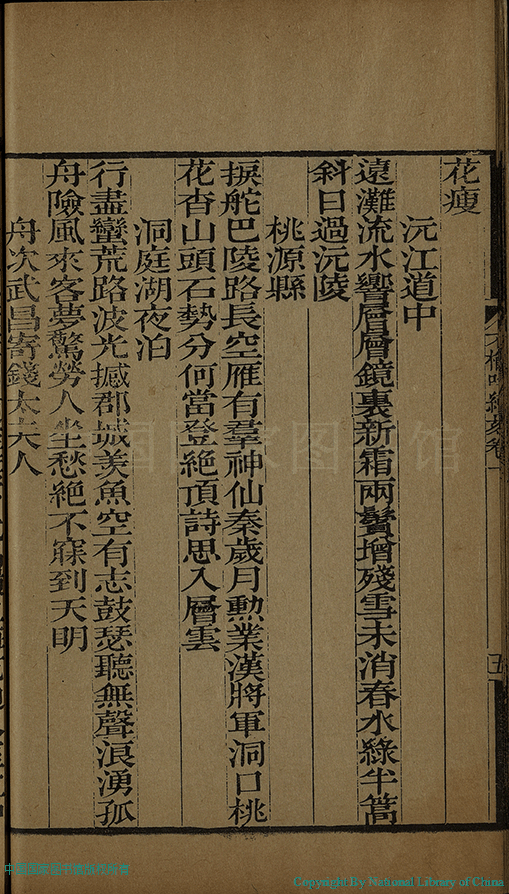 花瘦
沅江道中
遠灘流水響層層鏡裏新霜兩鬢增殘雪未消春水綠半篙
斜日過沅陵
桃源縣
捩舵巴陵路長空雁有羣神仙秦歲月勲業漢將軍洞口桃
花杳山頭石勢分何當登絕頂詩思入層雲
洞庭湖夜泊
行盡蠻荒路波光撼郡城羨魚空有志鼓瑟聽無聲浪湧孤
舟險風來客夢驚勞人坐愁絕不寐到天明
舟次武昌寄錢太夫人
五
中国国家图书馆
Copyright By National Library of China